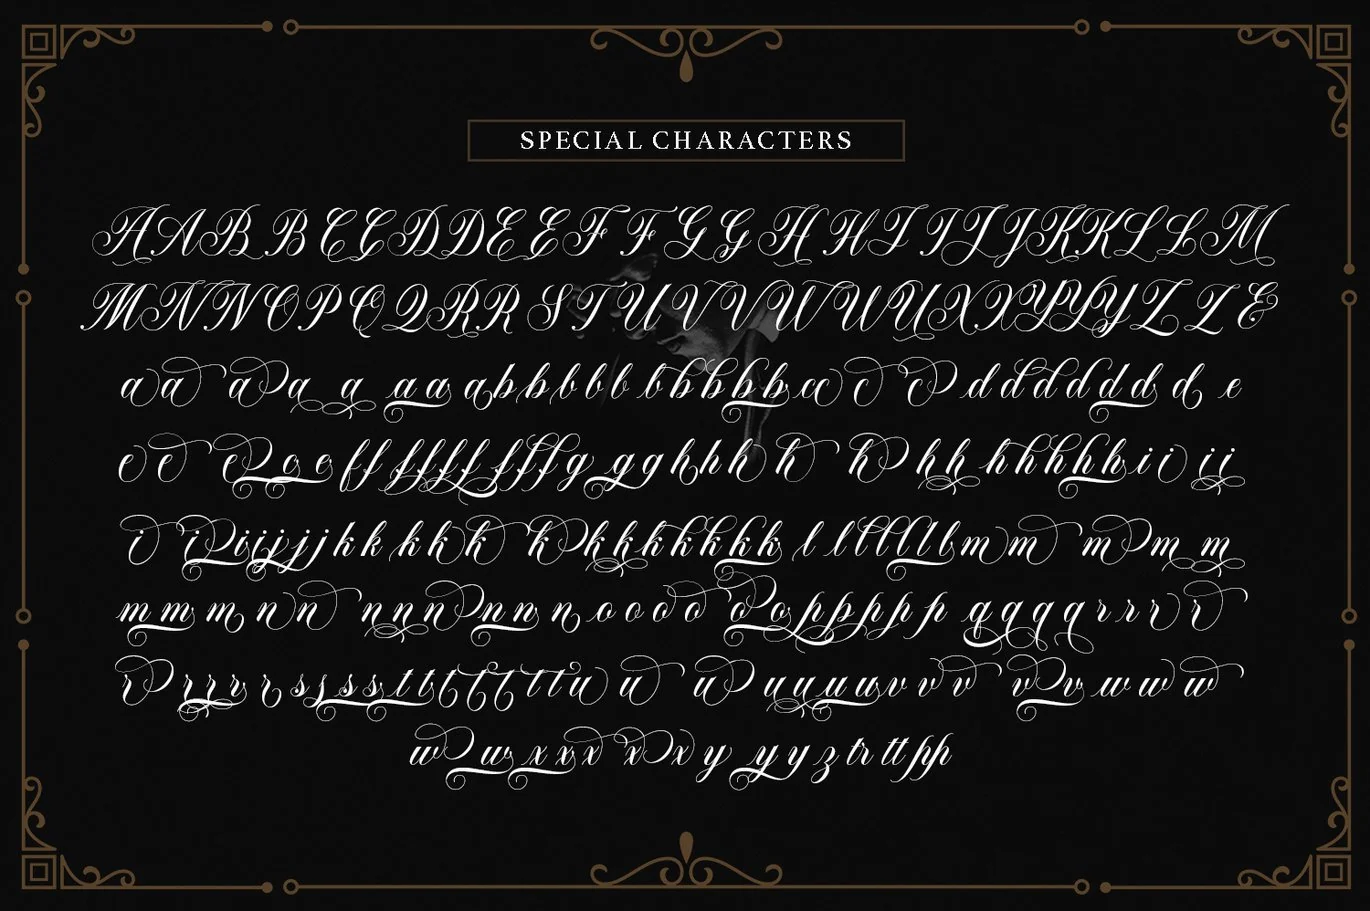 SPECIAL CHARACTERS
A A B B C C D D E E F F G G H H I I J J K K L L M
M N N O P Q Q R R S T U V V W W U X X Y Y Y Z Z &
a a a a a a a a b b b b b b b b b c c c c d d d d d d d e
e e e e e f f f f f f f f f g g g h h h h h h h h h h h h i i i i
i i i i j j j k k k k k k k k k k k k l l l l l l l m m m m m
m m m n n n n n n n n o o o o o o p p p p p q q q q r r r r r
r r r r r s s s s t t t t t t t t u u u u u u u v v v v v w w w
w w x x x x x y y y z tr tt pp